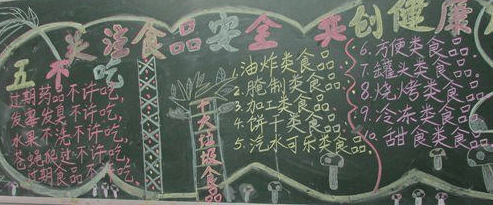 关注食品安全 共创健康
五不吃
过期药品不许吃,
发霉发臭不许吃,
水果不洗不许吃,
苍蝇爬过不许吃,
过期食品不许吃,
十大垃圾食品
1.油炸类食品.
2.腌制类食品.
3.加工类食品.
4.饼干类食品.
5.汽水可乐类食品.
6.方便类食品.
7.罐头类食品.
8.烧烤类食品.
9.冷冻类食品.
10.甜食类食品.